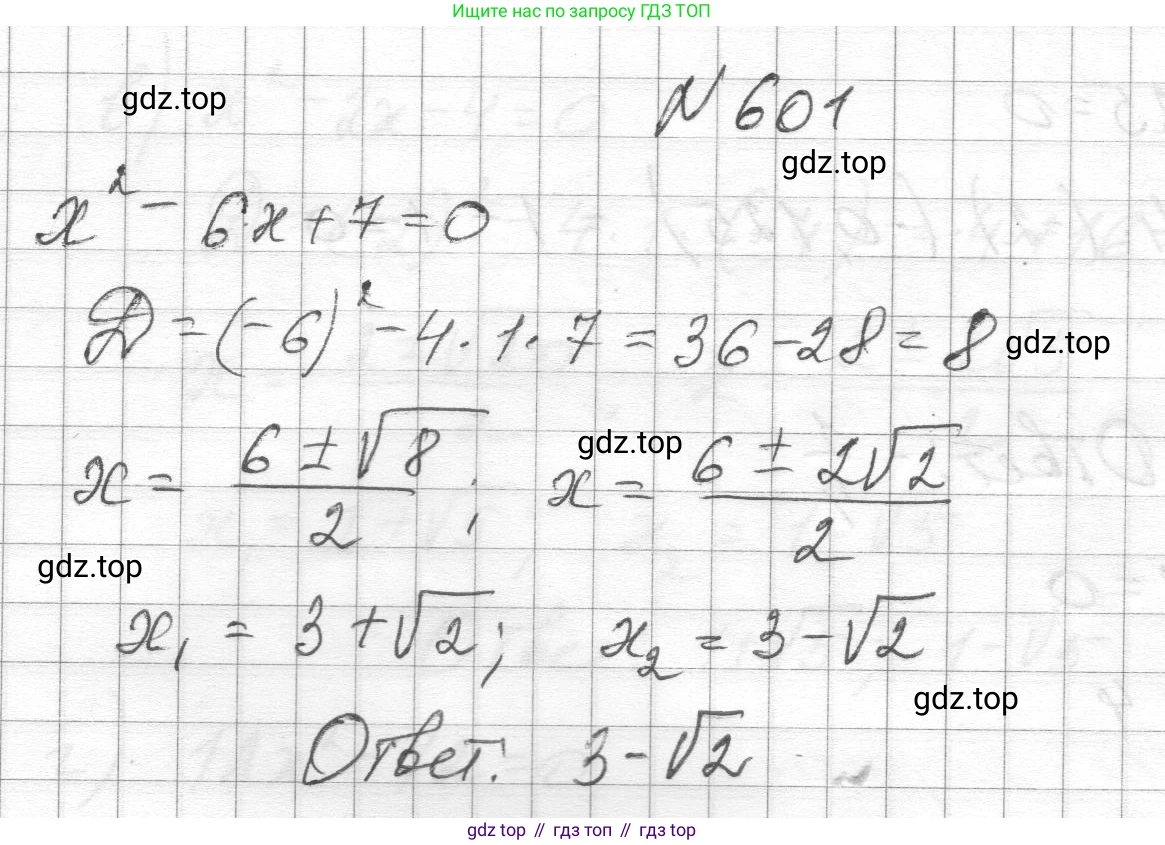 Ищите нас по запросу ГДЗ ТОП
gdz.top
N 601
gdz.top
x² - 6x + 7 = 0
D = (-6)² - 4 · 1 · 7 = 36 - 28 = 8 gdz.top
x = (6 ± √8)/2 ; gdz.top x = (6 ± 2√2)/2
gdz.top
x₁ = 3 + √2 ; x₂ = 3 - √2
gdz.top
Ответ: 3 - √2
gdz top // гдз топ // гдз top